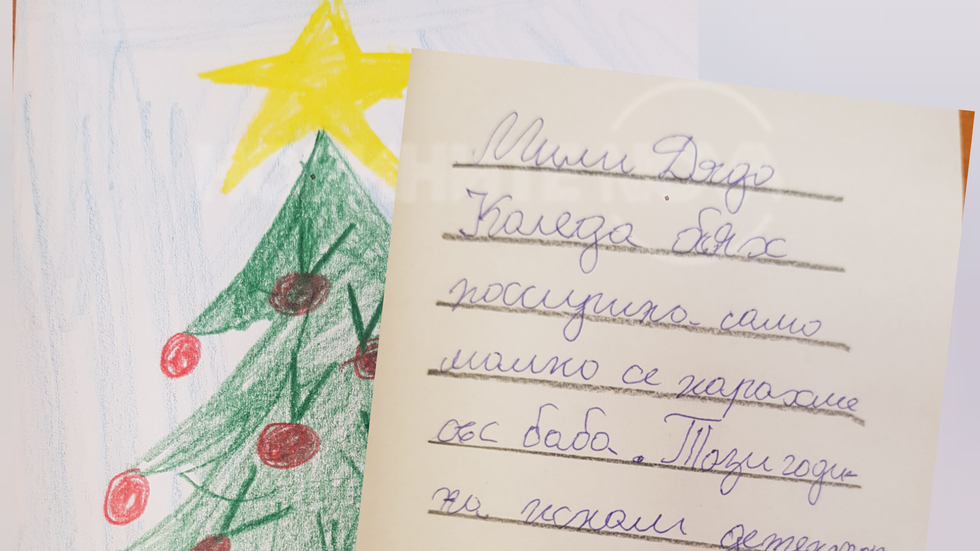 Мили Дядо
Коледа бях
послушна само
малко се карахме
със баба. Тази годи-
на искам